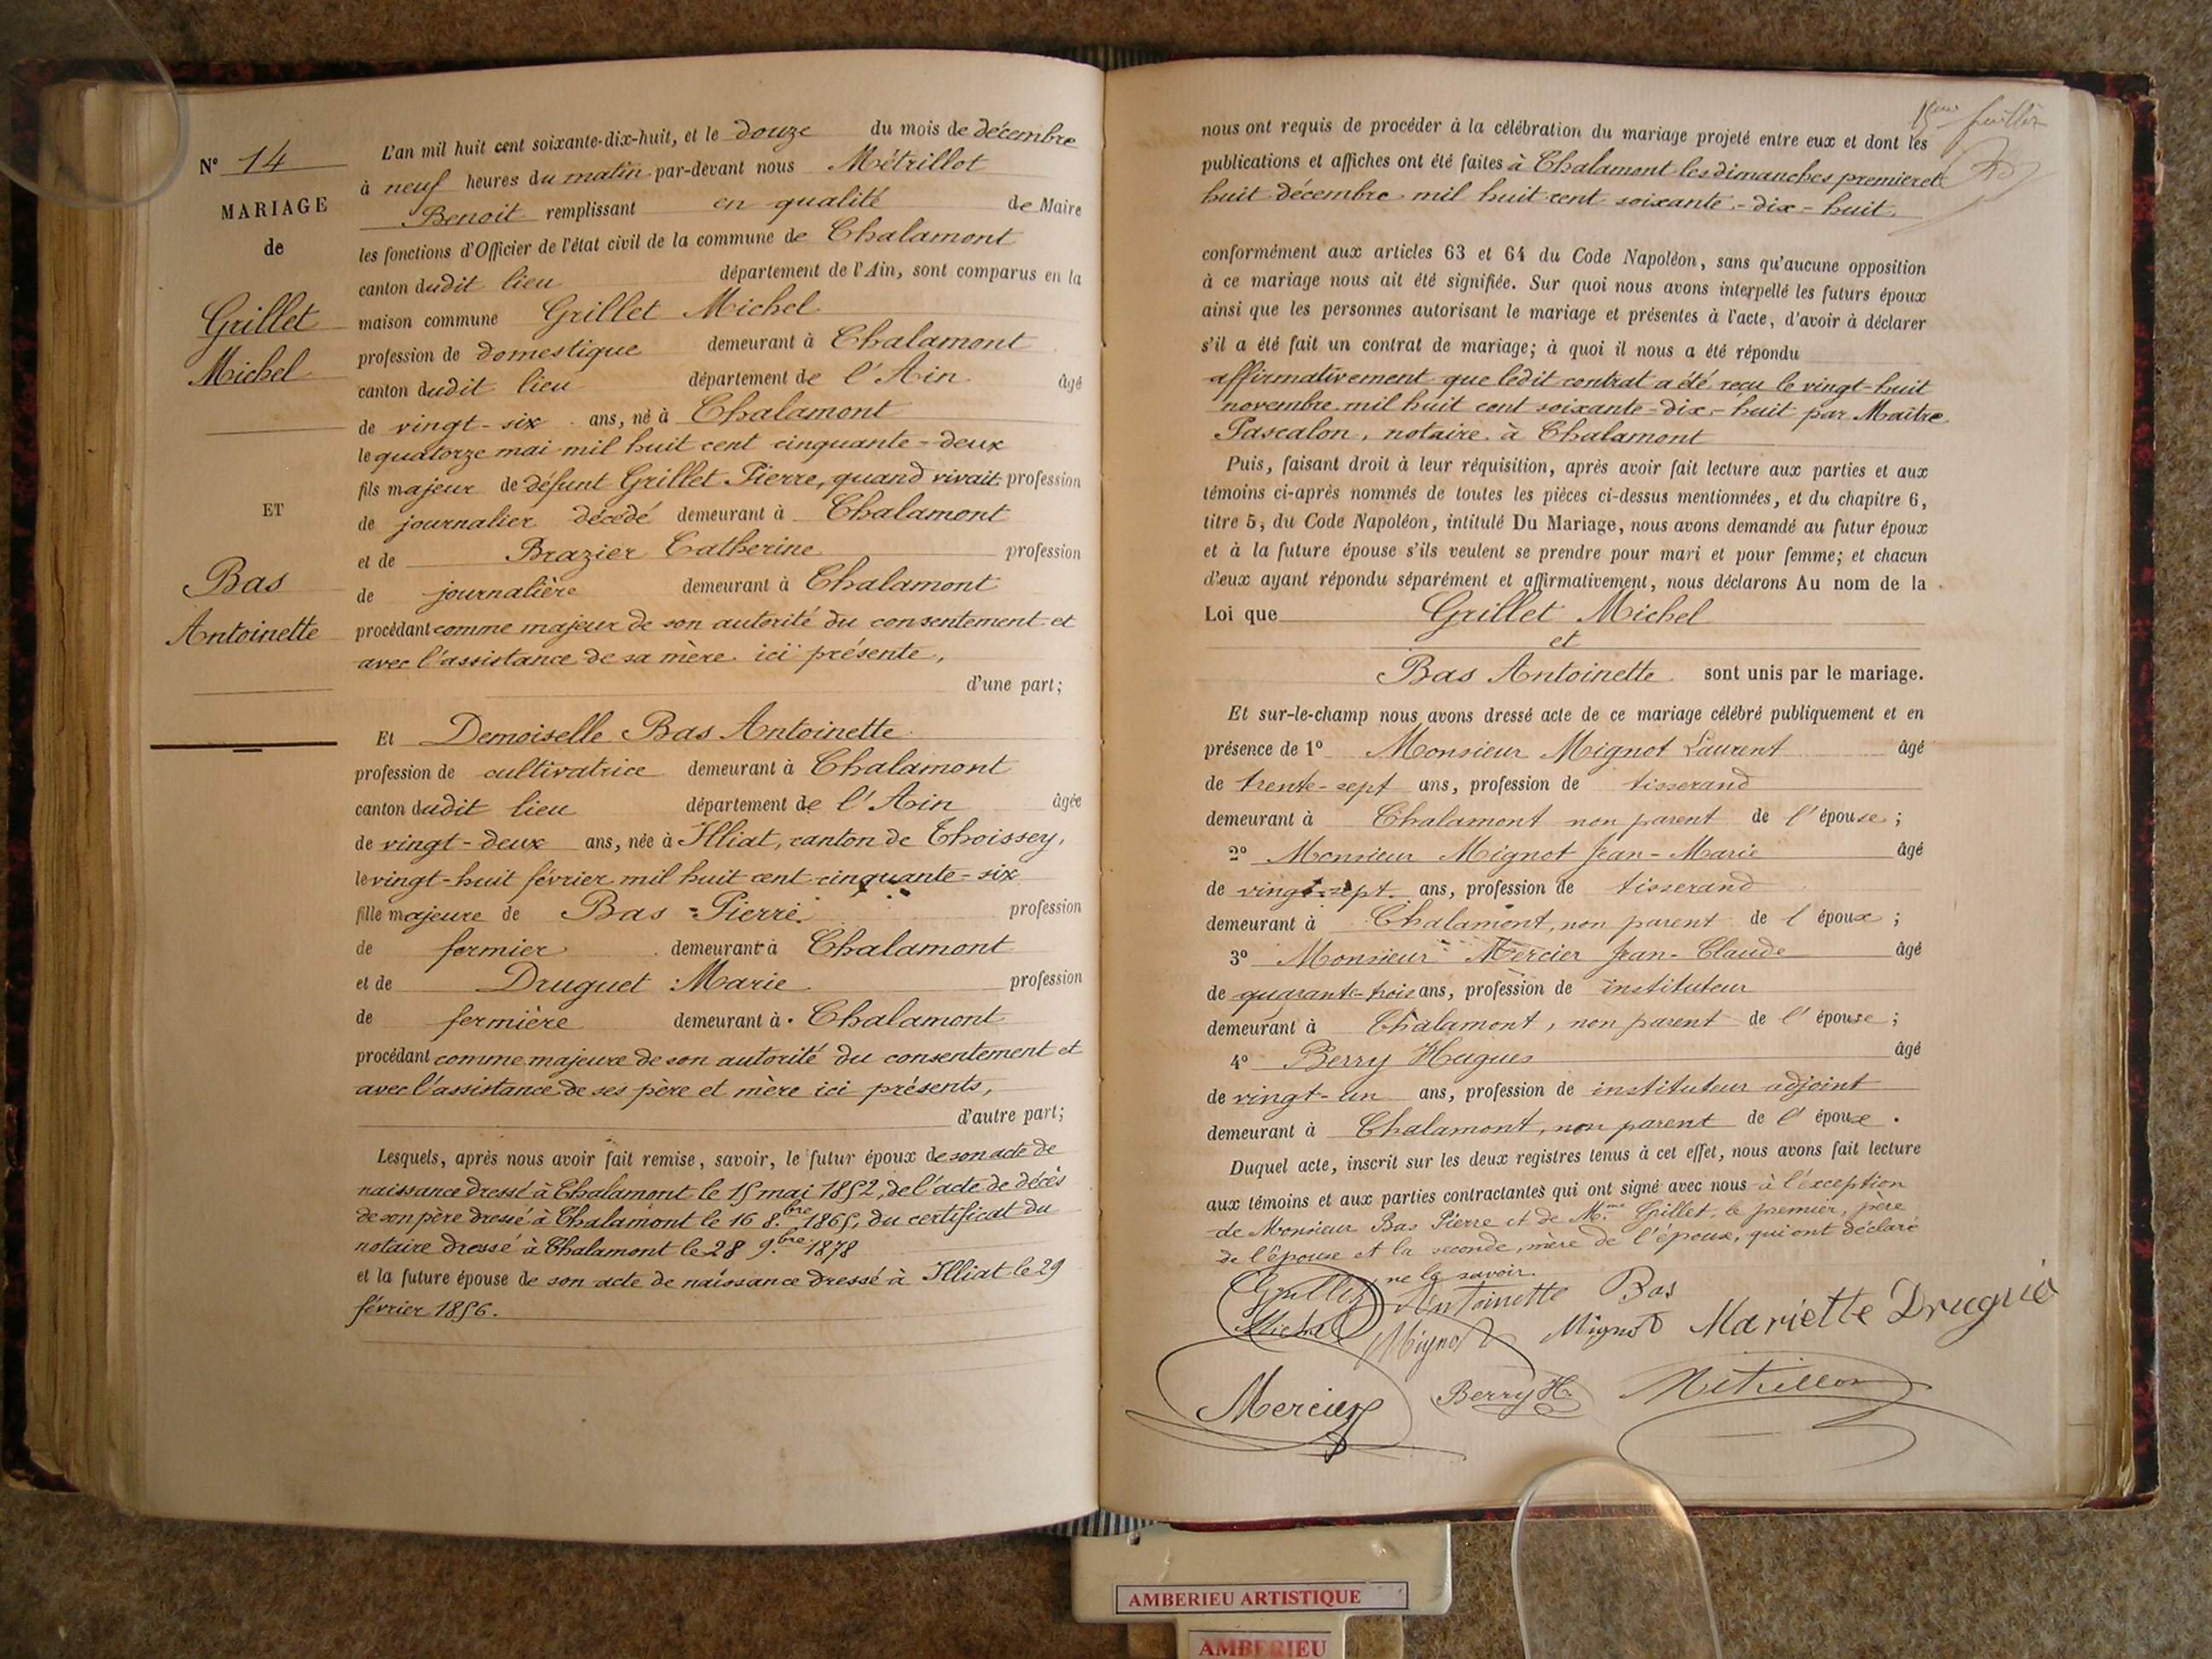 N° 14
MARIAGE
de
Grillet
Michel
ET
Bas
Antoinette
L'an mil huit cent soixante-dix-huit, et le douze du mois de décembre
à neuf heures du matin par-devant nous Métrillot
Benoit remplissant en qualité de Maire
les fonctions d'Officier de l'état civil de la commune de Chalamont
canton dudit lieu département de l'Ain, sont comparus en la
maison commune Grillet Michel
profession de domestique demeurant à Chalamont
canton dudit lieu département de l'Ain âgé
de vingt-six ans, né à Chalamont
le quatorze mai mil huit cent cinquante-deux
fils majeur de défunt Grillet Pierre, quand vivait profession
de journalier décédé demeurant à Chalamont
et de Brazier Catherine profession
de journalière demeurant à Chalamont
procédant comme majeur de son autorité du consentement et
avec l'assistance de sa mère ici présente,
d'une part;
Et Demoiselle Bas Antoinette
profession de cultivatrice demeurant à Chalamont
canton dudit lieu département de l'Ain âgée
de vingt-deux ans, née à Illiat, canton de Thoissey,
le vingt-huit février mil huit cent cinquante-six
fille majeure de Bas Pierre profession
de fermier demeurant à Chalamont
et de Druguet Marie profession
de fermière demeurant à Chalamont
procédant comme majeure de son autorité du consentement et
avec l'assistance de ses père et mère ici présents,
d'autre part;
Lesquels, après nous avoir fait remise, savoir, le futur époux de son acte de
naissance dressé à Chalamont le 15 mai 1852, de l'acte de décès
de son père dressé à Chalamont le 16 8.bre 1865, du certificat du
notaire dressé à Chalamont le 28 9.bre 1878
et la future épouse de son acte de naissance dressé à Illiat le 29
février 1856.
15eme feuillet
nous ont requis de procéder à la célébration du mariage projeté entre eux et dont les
publications et affiches ont été faites à Chalamont les dimanches premier et
huit décembre mil huit cent soixante-dix-huit.
conformément aux articles 63 et 64 du Code Napoléon, sans qu'aucune opposition
à ce mariage nous ait été signifiée. Sur quoi nous avons interpellé les futurs époux
ainsi que les personnes autorisant le mariage et présentes à l'acte, d'avoir à déclarer
s'il a été fait un contrat de mariage; à quoi il nous a été répondu
affirmativement que ledit contrat a été reçu le vingt-huit
novembre mil huit cent soixante-dix-huit par Maître
Pascalon, notaire à Chalamont
Puis, faisant droit à leur réquisition, après avoir fait lecture aux parties et aux
témoins ci-après nommés de toutes les pièces ci-dessus mentionnées, et du chapitre 6,
titre 5, du Code Napoléon, intitulé Du Mariage, nous avons demandé au futur époux
et à la future épouse s'ils veulent se prendre pour mari et pour femme; et chacun
d'eux ayant répondu séparément et affirmativement, nous déclarons Au nom de la
Loi que Grillet Michel
et
Bas Antoinette sont unis par le mariage.
Et sur-le-champ nous avons dressé acte de ce mariage célébré publiquement et en
présence de 1° Monsieur Mignot Laurent âgé
de trente-sept ans, profession de tisserand
demeurant à Chalamont non parent de l'épouse;
2° Monsieur Mignot Jean-Marie âgé
de vingt-sept ans, profession de tisserand
demeurant à Chalamont, non parent de l'époux;
3° Monsieur Mercier Jean-Claude âgé
de quarante-trois ans, profession de instituteur
demeurant à Chalamont, non parent de l'épouse;
4° Berry Hugues âgé
de vingt-un ans, profession de instituteur adjoint
demeurant à Chalamont, non parent de l'époux.
Duquel acte, inscrit sur les deux registres tenus à cet effet, nous avons fait lecture
aux témoins et aux parties contractantes qui ont signé avec nous à l'exception
de Monsieur Bas Pierre et de M.me Grillet, le premier, père
de l'épouse et la seconde, mère de l'époux, qui ont déclaré
ne le savoir.
Grillet Antoinette Bas
Michel Mignot Mignot Mariette Druguet
Mercier Berry H. Métrillot
AMBERIEU ARTISTIQUE
AMBERIEU